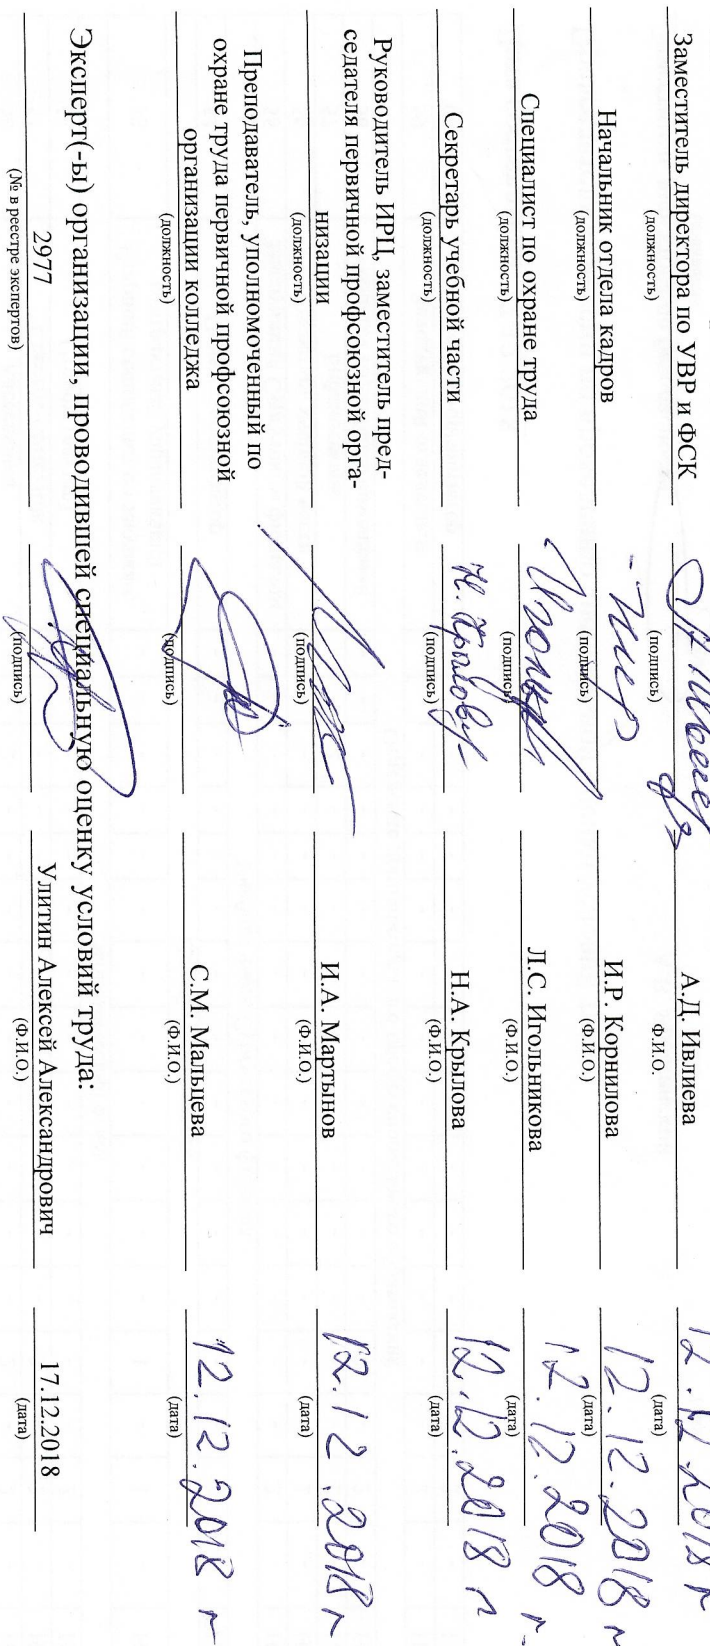 Заместитель директора по УВР и ФСК А.Д. Ивлиева 12.12.2018 г
(должность) (подпись) Ф.И.О. (дата)
Начальник отдела кадров И.Р. Корнилова 12.12.2018 г
(должность) (подпись) (Ф.И.О.) (дата)
Специалист по охране труда Л.С. Игольникова 12.12.2018 г.
(должность) (подпись) (Ф.И.О.) (дата)
Секретарь учебной части Н. Крылову Н.А. Крылова 12.12.2018 г
(должность) (подпись) (Ф.И.О.) (дата)
Руководитель ИРЦ, заместитель пред-
седателя первичной профсоюзной орга-
низации И.А. Мартынов 12.12.2018 г
(должность) (подпись) (Ф.И.О.) (дата)
Преподаватель, уполномоченный по
охране труда первичной профсоюзной
организации колледжа С.М. Мальцева 12.12.2018 г
(должность) (подпись) (Ф.И.О.) (дата)
Эксперт(-ы) организации, проводившей специальную оценку условий труда:
2977 Улитин Алексей Александрович 17.12.2018
(№ в реестре экспертов) (подпись) (Ф.И.О.) (дата)